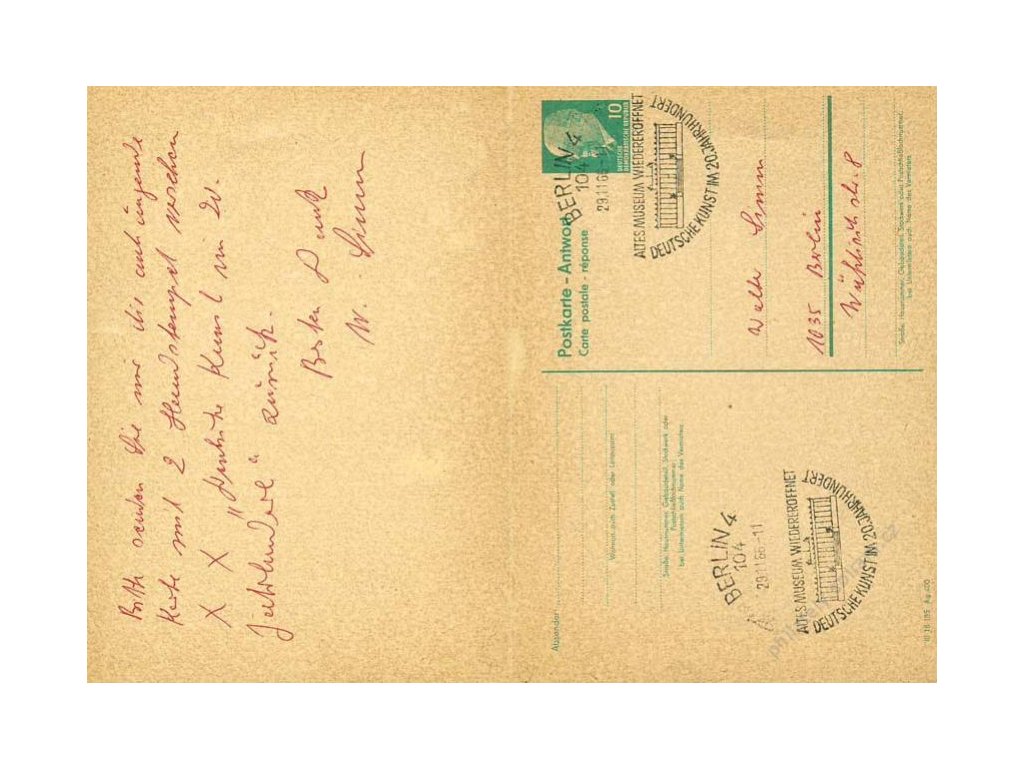 Bitte senden Sie mir die anhängende
Karte mit 2 Handstempel versehen
X X "Deutsche Kunst im 20.
Jahrhundert" zurück.
Besten Dank
W.
10
DEUTSCHE
DEMOKRATISCHE REPUBLIK
Postkarte – Antwort
Carte postale - réponse
BERLIN 4
104
29.11.66-11
ALTES MUSEUM WIEDERERÖFFNET
DEUTSCHE KUNST IM 20. JAHRHUNDERT
1035 Berlin
Straße, Hausnummer, Gebäudeteil, Stockwerk oder Postschließfachnummer;
bei Untermietern auch Name des Vermieters
Absender:
Wohnort, auch Zustell- oder Leitpostamt
Straße, Hausnummer, Gebäudeteil, Stockwerk oder
Postschließfachnummer;
bei Untermietern auch Name des Vermieters
BERLIN 4
104
29.11.66-11
ALTES MUSEUM WIEDERERÖFFNET
DEUTSCHE KUNST IM 20. JAHRHUNDERT
III 18 185 Ag 400